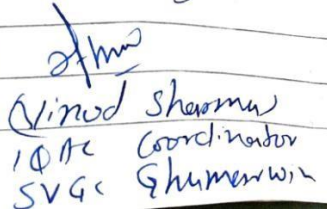 Vinod Sharma
IQAC Coordinator
SVGC Ghumarwin